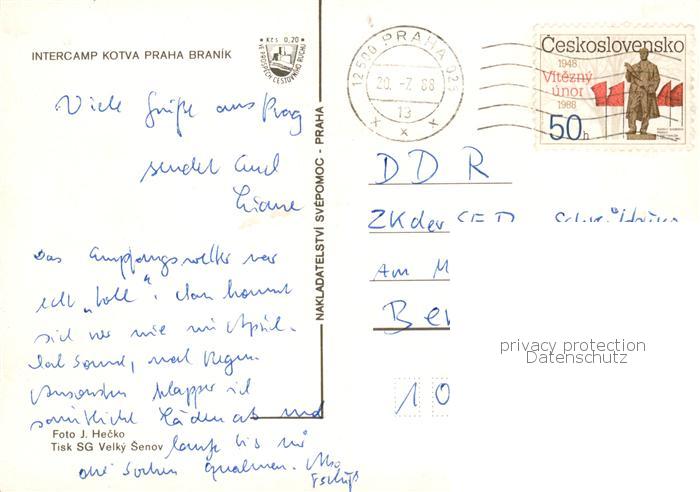 INTERCAMP KOTVA PRAHA BRANÍK
Kčs 0,20
VE PROSPĚCH CESTOVNÍHO RUCHU
Viele Grüße aus Prag
sendet Euch
Das Empfangswetter war
echt „toll“. Man kommt
sich vor wie im April.
Mal Sonne, mal Regen.
Ansonsten klapper ich
sämtliche Läden ab und
laufe bis mir
die Socken qualmen. Also
Tschüß
Foto J. Hečko
Tisk SG Velký Šenov
NAKLADATELSTVÍ SVÉPOMOC - PRAHA
12500 PRAHA 025
20.-7.88
13
x x x
Československo
1948
Vítězný
únor
1988
50h
DDR
ZK der SED
Am M
Be
10
privacy protection
Datenschutz